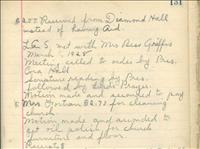 131
$2.00 Received from Diamond Hall
instead of Having Aid.
L. A. S. met with Mrs. Bess Griffin
March 1925
Meeting called to order by Pres.
Ora Hall
Scripture reading by Pres.
followed by Lord's Prayer.
Motion made and seconded to pay
Mrs. $2.75 for cleaning
church
Motion made and seconded to
get oil polish for church
furniture and floor